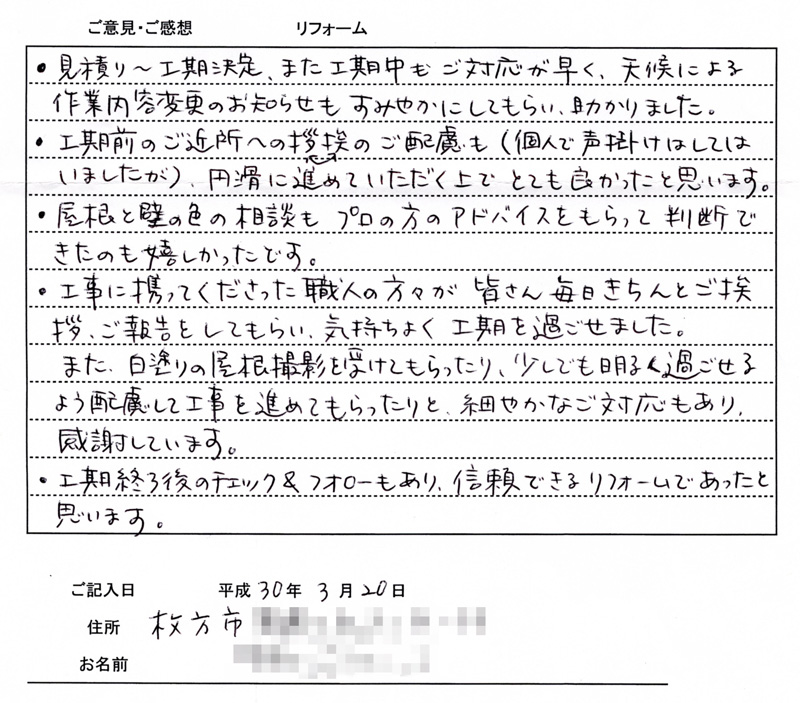 ご意見・ご感想 リフォーム
・見積り〜工期決定、また工期中もご対応が早く、天候による
作業内容変更のお知らせもすみやかにしてもらい、助かりました。
・工期前のご近所への挨拶のご配慮も(個人で声掛けはしては
いましたが)、円滑に進めていただく上でとても良かったと思います。
・屋根と壁の色の相談もプロの方のアドバイスをもらって判断で
きたのも嬉しかったです。
・工事に携ってくださった職人の方々が皆さん毎日きちんとご挨
拶、ご報告をしてもらい、気持ちよく工期を過ごせました。
また、白塗りの屋根撮影を受けてもらったり、少しでも明るく過ごせる
よう配慮して工事を進めてもらったりと、細やかなご対応もあり、
感謝しています。
・工期終了後のチェック&フォローもあり、信頼できるリフォームであったと
思います。
ご記入日 平成30年 3月20日
住所 枚方市
お名前